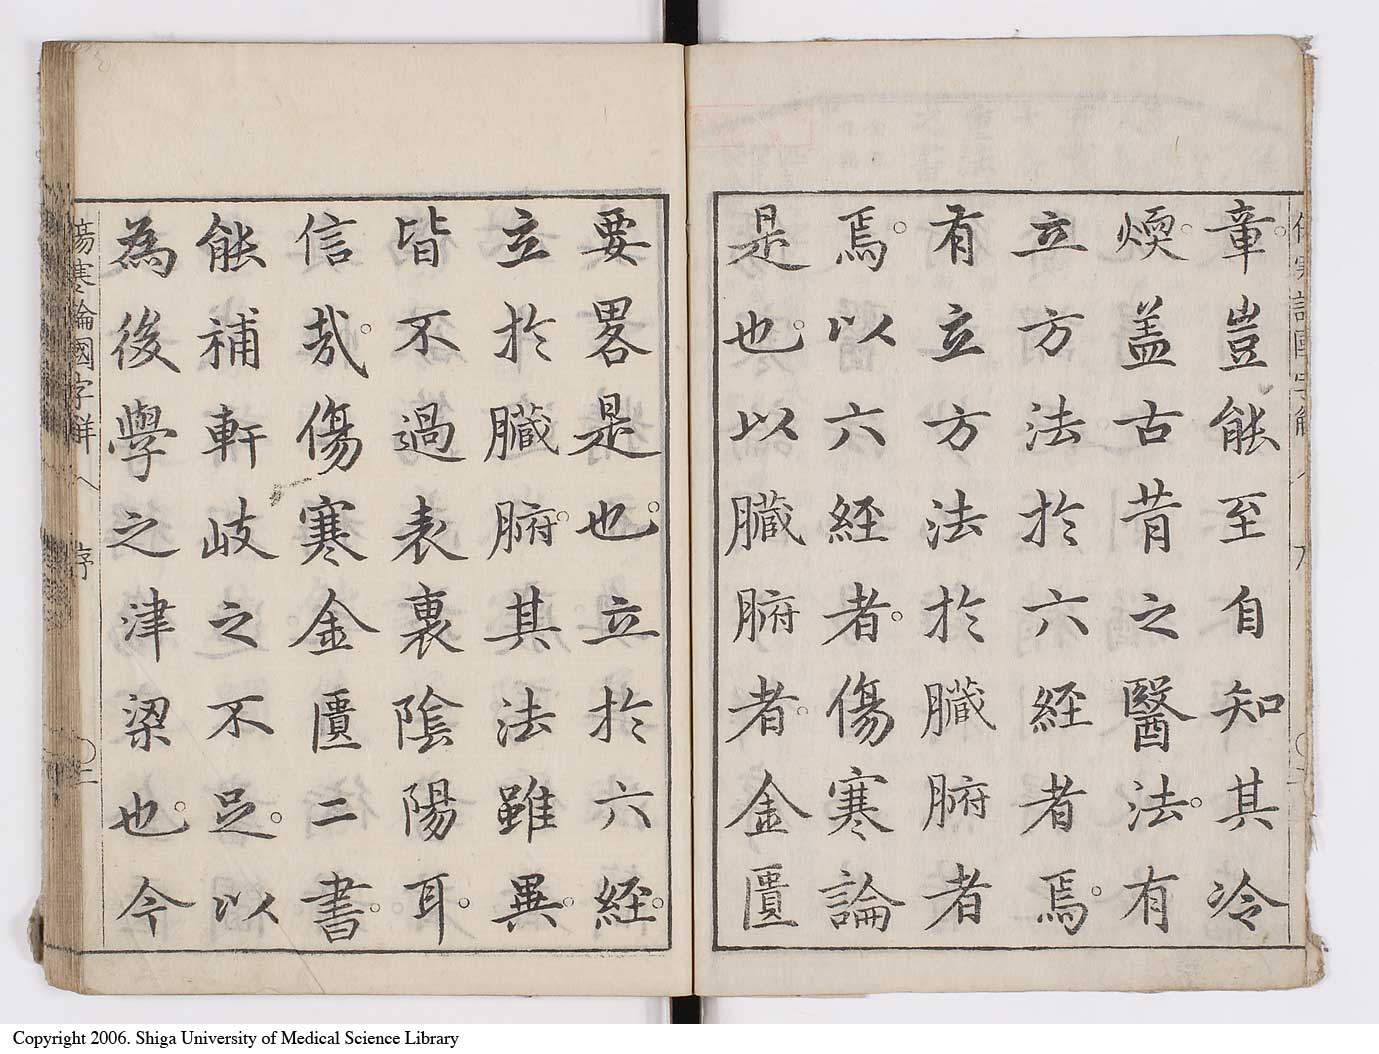 章。豈能至自知其冷
煗。蓋古昔之醫法。有
立方法於六経者焉。
有立方法於臓腑者
焉。以六経者。傷寒論
是也。以臓腑者。金匱
要畧是也。立於六経。
立於臓腑。其法雖異。
皆不過表裏陰陽耳。
信哉。傷寒金匱二書。
能補軒岐之不足。以
為後學之津梁也。今
傷寒論國字解 序 〇二
Copyright 2006. Shiga University of Medical Science Library